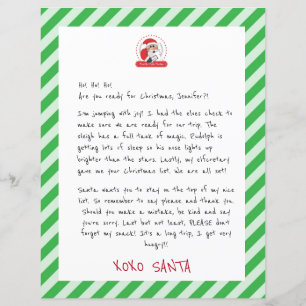 Ho! Ho! Ho!
Are you ready for Christmas, Jennifer?!
I'm jumping with joy! I had the elves check to
make sure we are ready for our trip. The
sleigh has a full tank of magic, Rudolph is
getting lots of sleep so his nose lights up
brighter than the stars. Lastly, my elfcretary
gave me your Christmas list. We are all set!
Santa wants you to stay on the top of my nice
list. So remember to say please and thank you.
Should you make a mistake, be kind and say
you're sorry. Last but not least, PLEASE don't
forget my snack! It's a long trip, I get very
hungry!!
XOXO SANTA